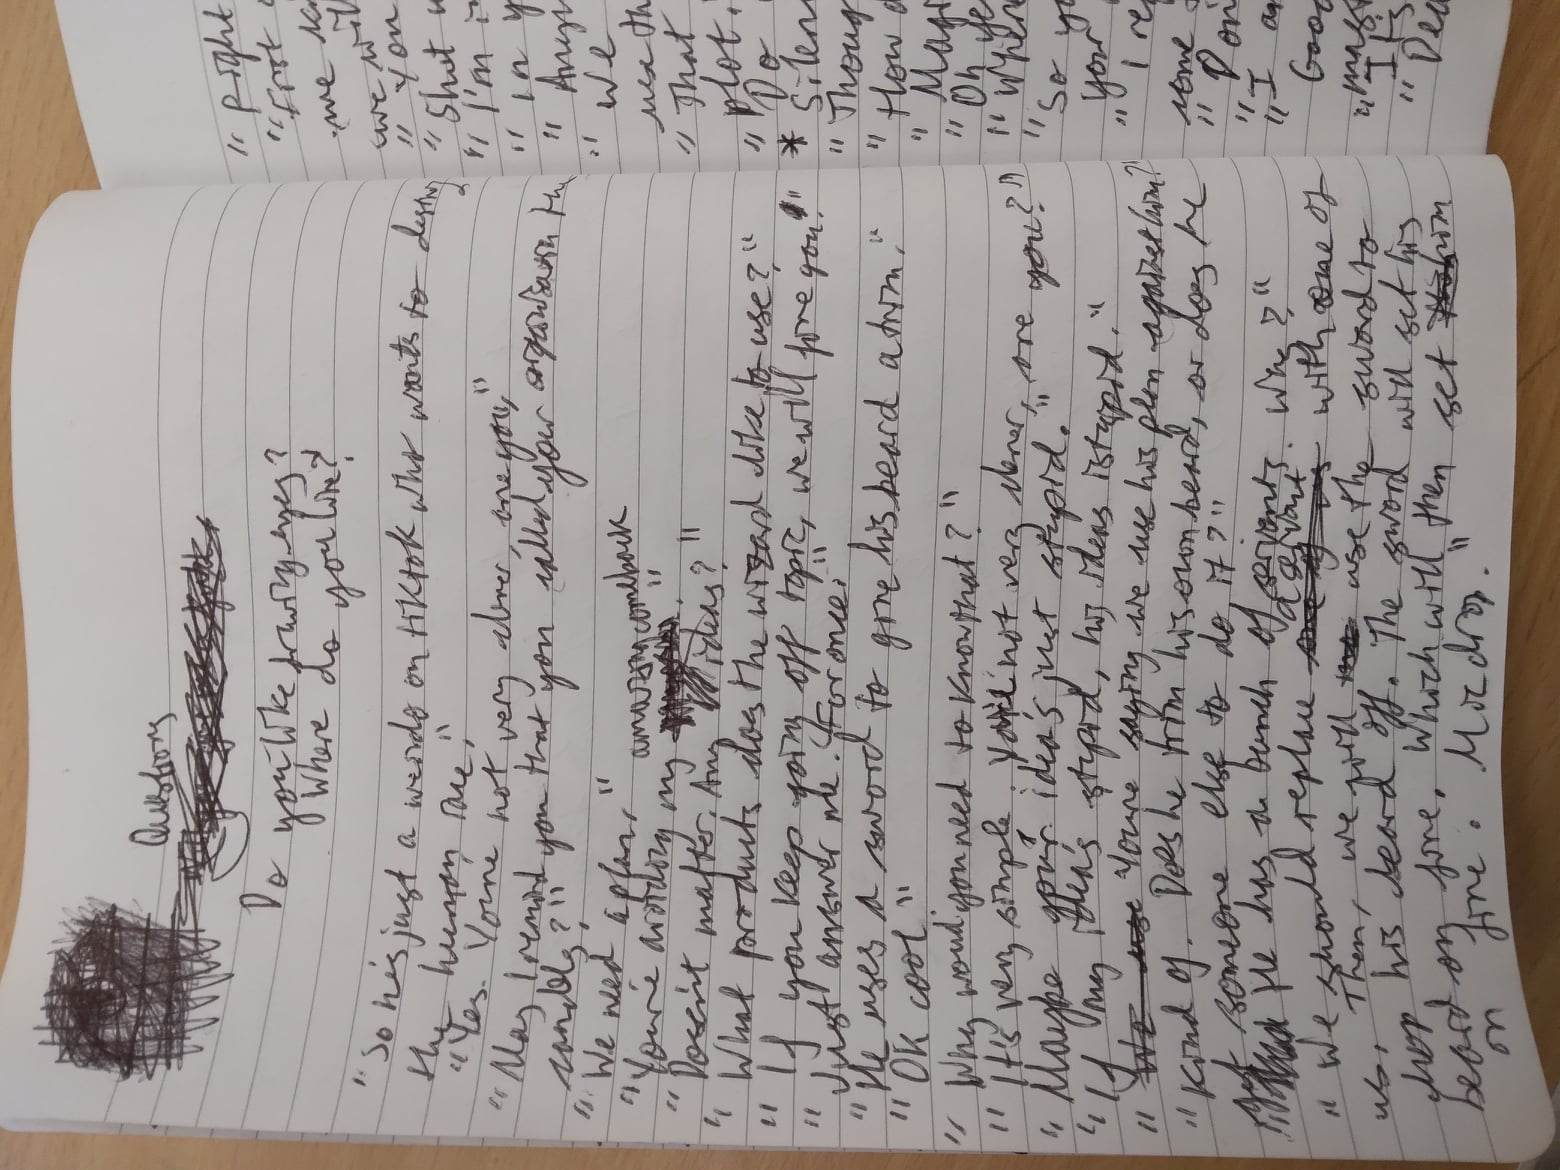 Questions
Do you like drawing eyes?
Where do you live?
"So he's just a weirdo on tiktok who wants to destroy
the human race."
"Yes. You're not very clever, are you,"
"May I remind you that you called your organisation the
candle?"
"We need a plan,"
"You're avoiding my
"Doesn't matter. Any ideas?"
"What products does the wizard like to use?"
"If you keep going off topic, we will fire you."
"Just answer me. For once."
"He uses a sword to give his beard a trim."
"OK cool"
"Why would you need to know that?"
"It's very simple. You're not very clever, are you?"
"Maybe your idea's just stupid."
"If any idea's stupid, his idea is stupid."
"You're saying we use his plan against him?"
"Kind of. Does he trim his own beard, or does he
get someone else to do it?"
"He has a bunch of servants. Why?"
"We should replace a servant with one of
us. Then, we will use the sword to
chop his beard off. The sword will set his
beard on fire, which will then set him
on fire. Mic drop."
"Right
"First
me
we will
"You
"Shut
"I'm
"In
"Any
"We
near th
"That
plot.
"Do
* Silen
"Thoug
"How
"Magi
"Oh ye
"Wren
"So yo
your
"I re
some
"Don
"I a
Good
"mag
"It's
"Dea